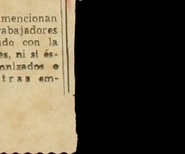 mencionan
rabajadores
ndo con la
es, ni si és-
mnizados o
tras em-